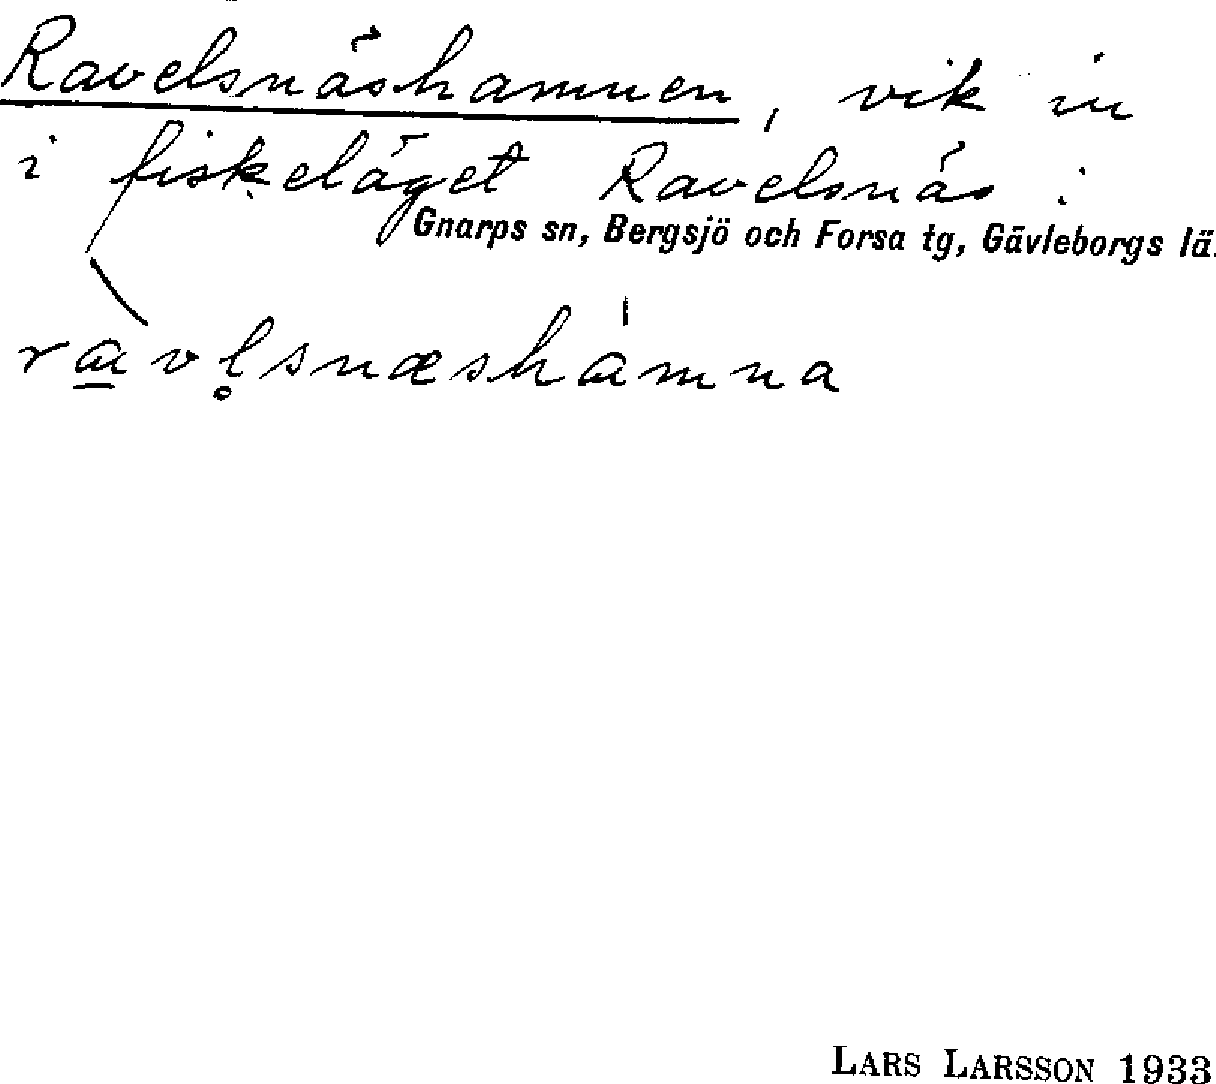 Ravelsnäshamnen, vik in
i fiskeläget Ravelsnäs i
Gnarps sn, Bergsjö och Forsa tg, Gävleborgs lä.
ravl̥snæshamna
LARS LARSSON 1933